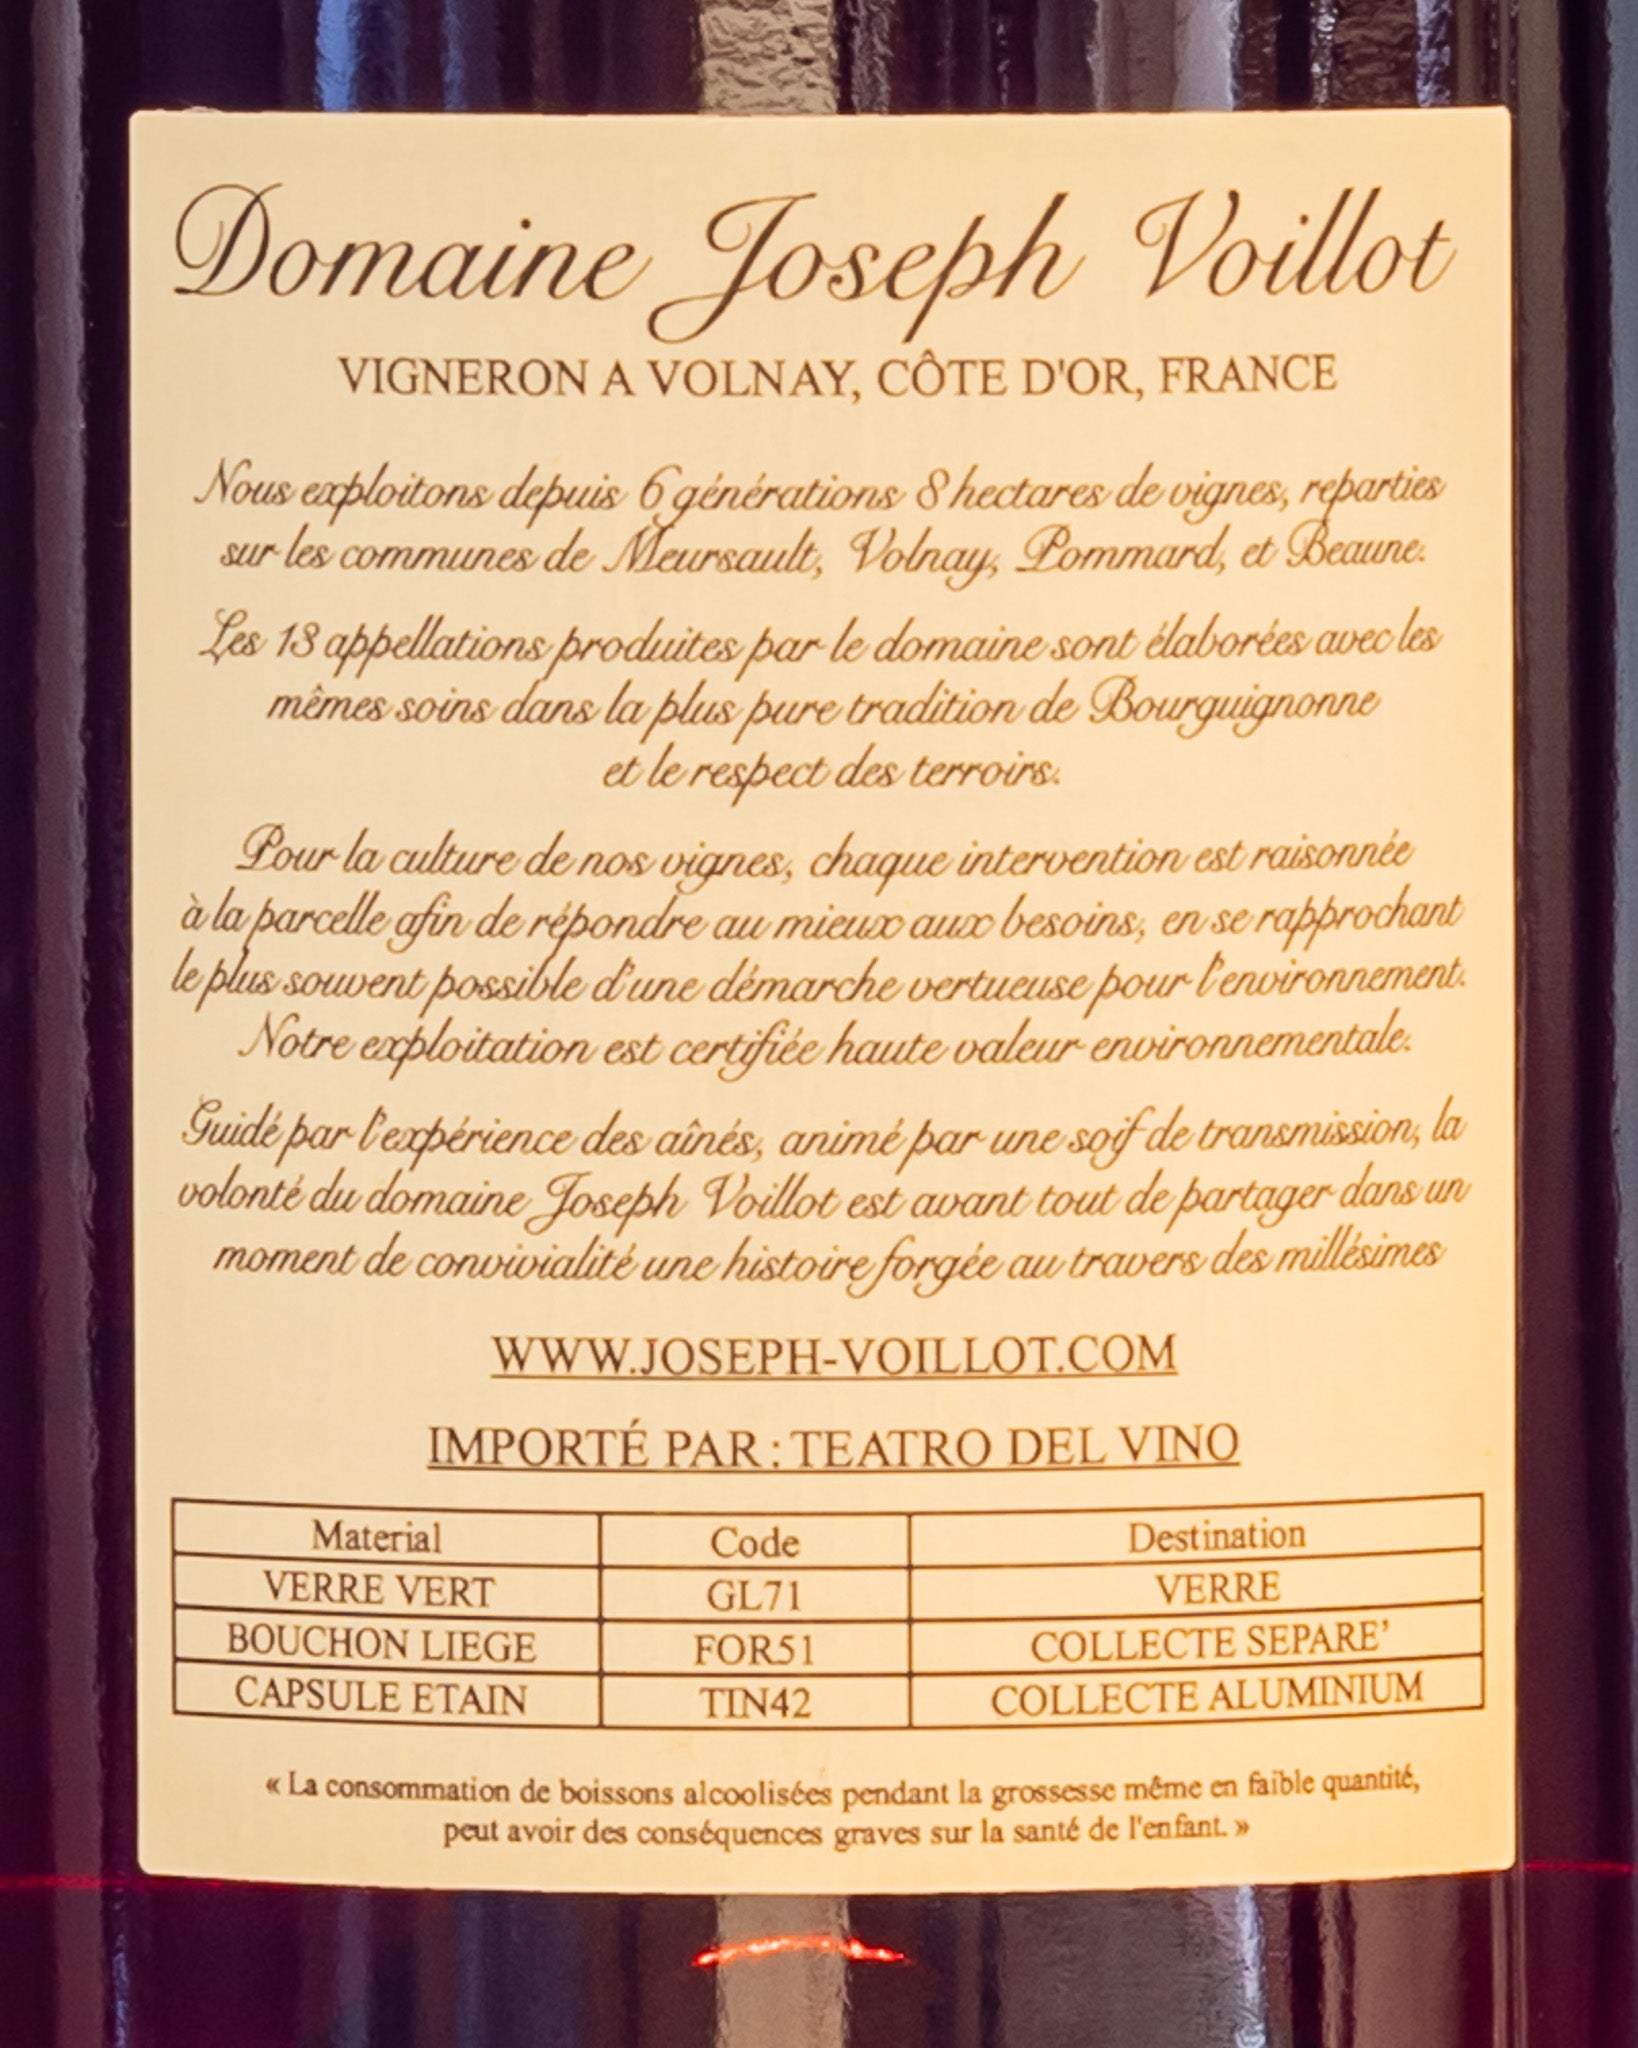 Domaine Joseph Voillot
VIGNERON A VOLNAY, CÔTE D'OR, FRANCE
Nous exploitons depuis 6 générations 8 hectares de vignes, reparties
sur les communes de Meursault, Volnay, Pommard, et Beaune.
Les 13 appellations produites par le domaine sont élaborées avec les
mêmes soins dans la plus pure tradition de Bourguignonne
et le respect des terroirs.
Pour la culture de nos vignes, chaque intervention est raisonnée
à la parcelle afin de répondre au mieux aux besoins, en se rapprochant
le plus souvent possible d'une démarche vertueuse pour l'environnement.
Notre exploitation est certifiée haute valeur environnementale.
Guidé par l'expérience des aînés, animé par une soif de transmission, la
volonté du domaine Joseph Voillot est avant tout de partager dans un
moment de convivialité une histoire forgée au travers des millésimes
WWW.JOSEPH-VOILLOT.COM
IMPORTÉ PAR : TEATRO DEL VINO
Material Code Destination
VERRE VERT GL71 VERRE
BOUCHON LIEGE FOR51 COLLECTE SEPARE’
CAPSULE ETAIN TIN42 COLLECTE ALUMINIUM
« La consommation de boissons alcoolisées pendant la grossesse même en faible quantité,
peut avoir des conséquences graves sur la santé de l'enfant. »